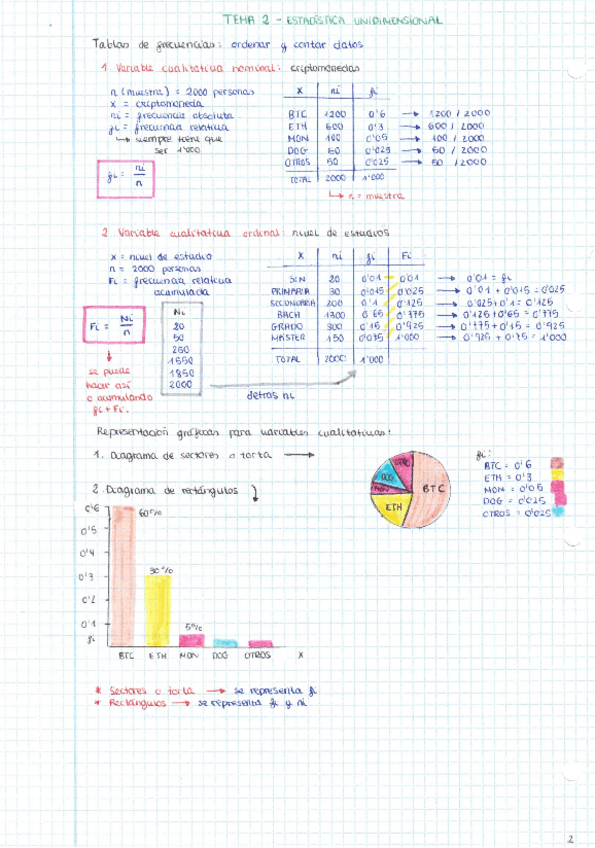 TEMA 2 - ESTADÍSTICA UNIDIMENSIONAL
Tablas de frecuencias: ordenar y contar datos
1. Variable cualitativa nominal: criptomonedas
n (muestra) = 2000 personas
X = criptomoneda
ni = frecuencia absoluta
fi = frecuencia relativa
↳ siempre tiene que
ser 1'000
fi = ni / n
X ni fi
BTC 1200 0'6 → 1200 / 2000
ETH 600 0'3 → 600 / 2000
MON 100 0'05 → 100 / 2000
DOG 50 0'025 → 50 / 2000
OTROS 50 0'025 → 50 / 2000
TOTAL 2000 1'000
↳ n = muestra
2. Variable cualitativa ordinal: nivel de estudios
X = nivel de estudio
n = 2000 personas
Fi = frecuencia relativa
acumulada
Fi = Ni / n
↓
se puede
hacer así
o acumulando
fi + Fi.
Ni
20
50
250
1550
1850
2000
X ni fi Fi
SIN 20 0'01 0'01 → 0'01 = fi
PRIMARIA 30 0'015 0'025 → 0'01 + 0'015 = 0'025
SECUNDARIA 200 0'1 0'125 → 0'025 + 0'1 = 0'125
BACH 1300 0'65 0'775 → 0'125 + 0'65 = 0'775
GRADO 300 0'15 0'925 → 0'775 + 0'15 = 0'925
MASTER 150 0'075 1'000 → 0'925 + 0'75 = 1'000
TOTAL 2000 1'000
detras ni
Representación gráficas para variables cualitativas:
1. Diagrama de sectores o torta →
OTRO
DOG
MON
BTC
ETH
fi:
BTC = 0'6
ETH = 0'3
MON = 0'05
DOG = 0'025
OTROS = 0'025
2. Diagrama de rectángulos
0'6
60%
0'5
0'4
0'3
30%
0'2
0'1
5%
fi
BTC ETH MON DOG OTROS X
* Sectores o torta → se representa fi
* Rectángulos → se representa fi y ni
2